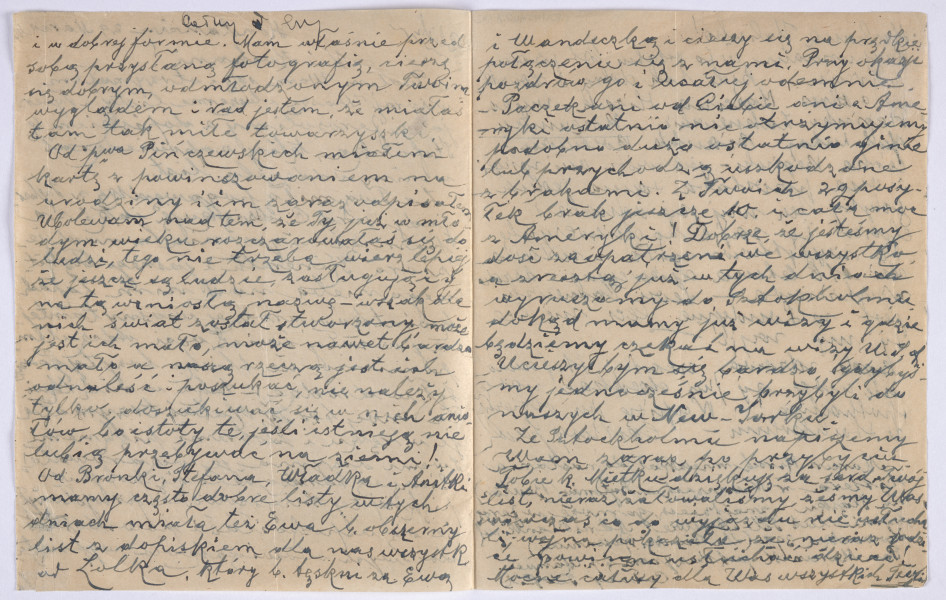 Całuję
i w dobrej formie. Mam właśnie przed
sobą przysłaną fotografię, cieszę
się dobrym, odmłodzonym Twoim
wyglądem i rad jestem, że miałaś
tam tak miłe towarzyszki.
Od pwa Pińczewskich miałem
kartę z powinszowaniem na
urodziny i im zaraz odpisałem
Ubolewam nad tem, że Ty już w mło-
dym wieku rozczarowałaś się do
ludzi, tego nie trzeba, wierz lepiej
że jeszcze są ludzie, zasługujący
na tę wzniosłą nazwę – wszak dla
nich świat został stworzony, może
jest ich mało, może nawet bardzo
mało a naszą rzeczą jest ich
odnaleść i poszukać, nie należy
tylko doszukiwać się w nich anio-
łów bo istoty te, jeśli istnieją, nie
lubią przebywać na ziemi!
Od Bronki, Stefana, Władka i Anitki
mamy często dobre listy, w tych
dniach miała też Ewa b. obszerny
list z dopiskiem dla nas wszystk.
od Lolka, który b. tęskni za Ewą
i Wandeczką i cieszy się na prędkie
połączenie się z nami. Przy okazji
pozdrów go i ucałuj odemnie
Paczek ani od Ciebie ani z Ame-
ryki ostatnio nie otrzymujemy
podobno dużo ostatnio ginie
lub przychodzą uszkodzone
z brakami. Z Twoich zg posy-
łek brak jeszcze 10 i cała moc
z Ameryki! Dobrze, że jesteśmy
dość zaopatrzeni we wszystko,
a zresztą już w tych dniach
wyruszamy do Sztokholmu
dokąd mamy już wizy i gdzie
będziemy czekać na wizy U.S.A.
Ucieszyłbym się bardzo gdybyś-
my jednocześnie przybyli do
naszych w New-Yorku.
Ze Sztockholmu napiszemy
Wam zaraz po przybyciu
Tobie k. Mietku dziękuję za serd. Twój
list, nieraz żałowaliśmy żeśmy Was
wówczas co do wyjazdu nie usłucha-
li, wojna pokazała, że nieraz rodzi-
ce powinni usłuchać dzieci!
Mocne całusy dla Was wszystkich